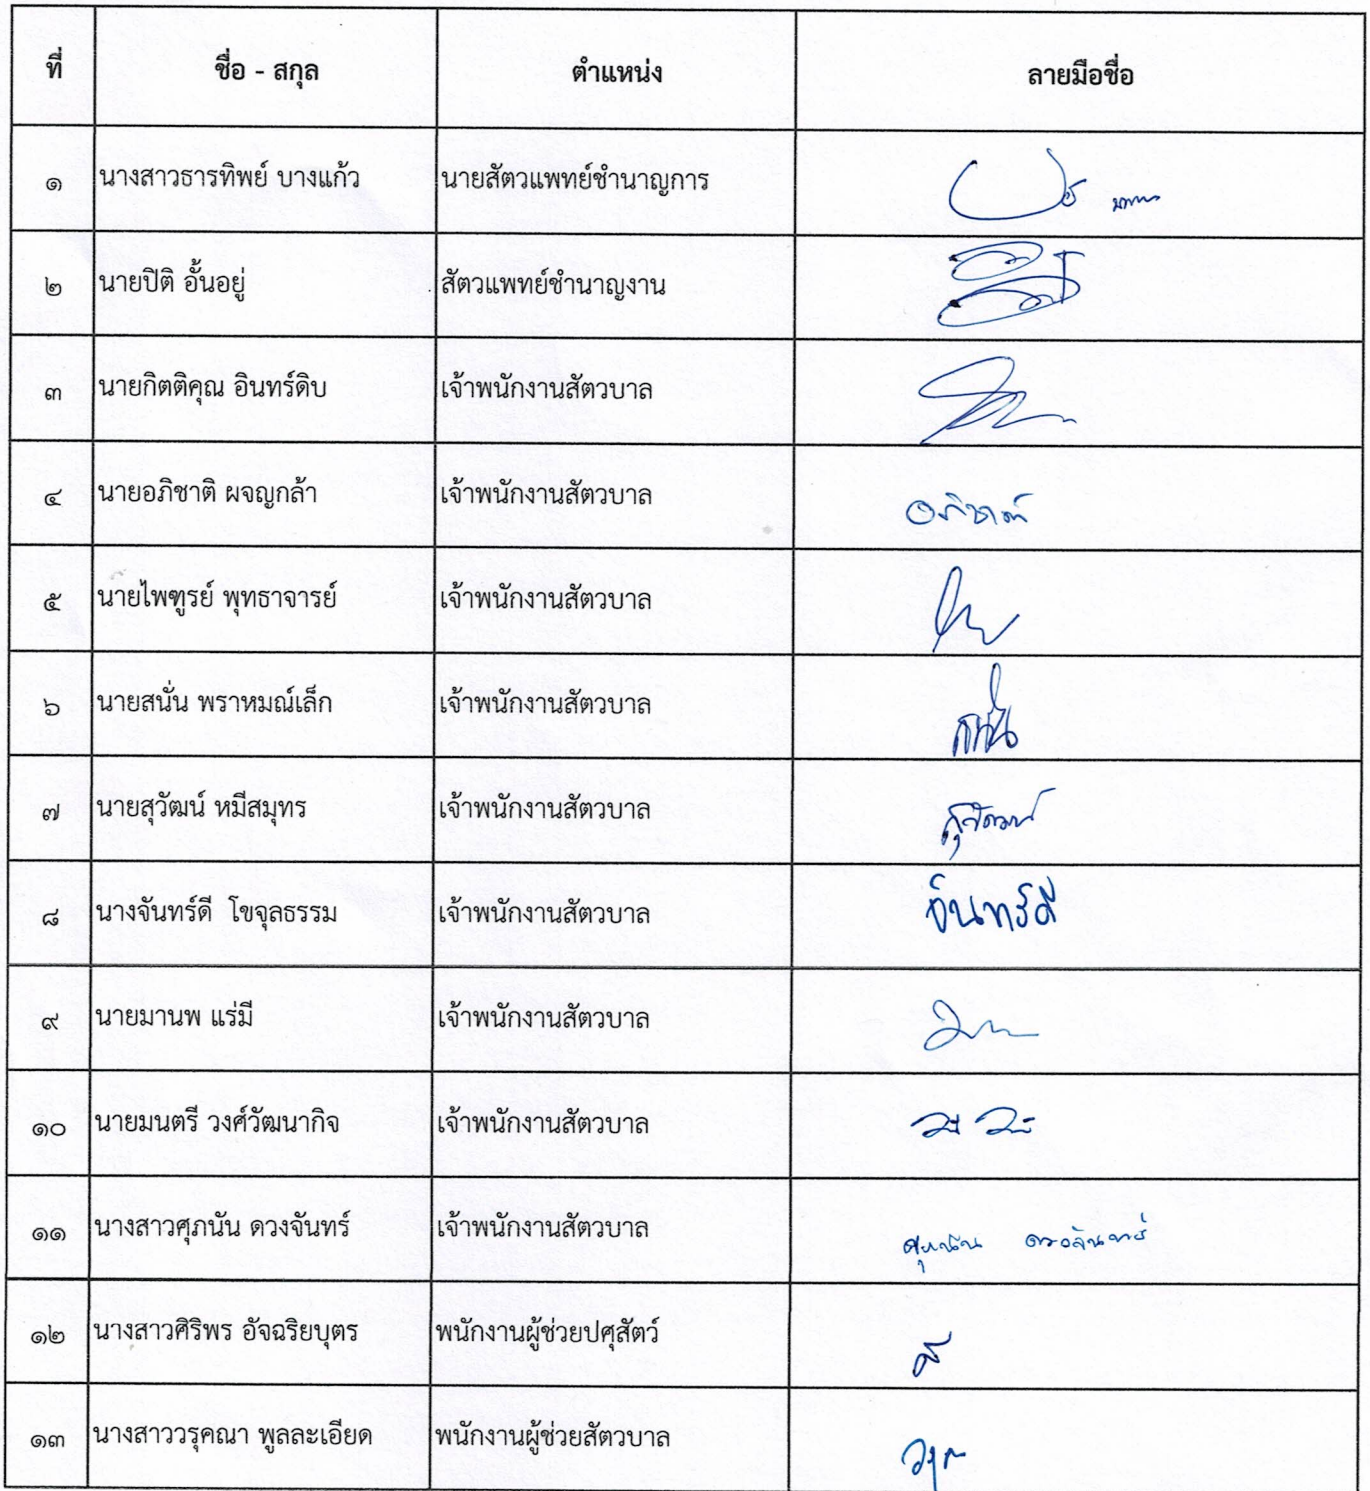 ที่ ชื่อ - สกุล ตำแหน่ง ลายมือชื่อ
๑ นางสาวธารทิพย์ บางแก้ว นายสัตวแพทย์ชำนาญการ
๒ นายปิติ อั้นอยู่ สัตวแพทย์ชำนาญงาน
๓ นายกิตติคุณ อินทร์ดิบ เจ้าพนักงานสัตวบาล
๔ นายอภิชาติ ผจญกล้า เจ้าพนักงานสัตวบาล
๕ นายไพฑูรย์ พุทธาจารย์ เจ้าพนักงานสัตวบาล
๖ นายสนั่น พราหมณ์เล็ก เจ้าพนักงานสัตวบาล สนั่น
๗ นายสุวัฒน์ หมีสมุทร เจ้าพนักงานสัตวบาล สุวัฒน์
๘ นางจันทร์ดี โขจุลธรรม เจ้าพนักงานสัตวบาล จันทร์ดี
๙ นายมานพ แร่มี เจ้าพนักงานสัตวบาล
๑๐ นายมนตรี วงศ์วัฒนากิจ เจ้าพนักงานสัตวบาล
๑๑ นางสาวศุภนัน ดวงจันทร์ เจ้าพนักงานสัตวบาล ศุภนัน ดวงจันทร์
๑๒ นางสาวศิริพร อัจฉริยบุตร พนักงานผู้ช่วยปศุสัตว์
๑๓ นางสาววรุคณา พูลละเอียด พนักงานผู้ช่วยสัตวบาล